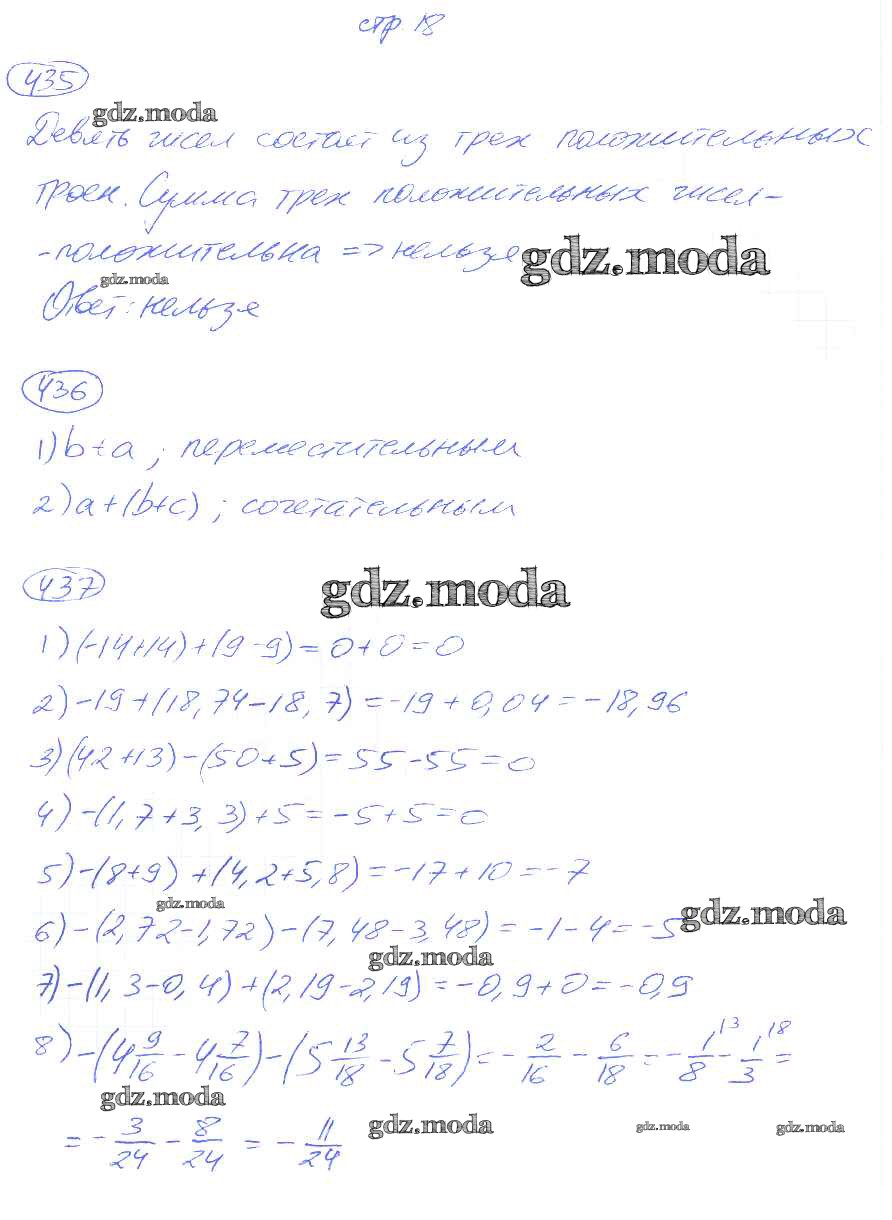 стр 18
435
gdz.moda
Девять чисел состоят из трех положительных
троек. Сумма трех положительных чисел-
-положительна => нельзя
gdz.moda
gdz.moda
Ответ: нельзя
436
1) b+a ; переместительным
2) a+(b+c) ; сочетательным
437
gdz.moda
1) (-14+14)+(9-9)=0+0=0
2) -19+(18,74-18,7)=-19+0,04=-18,96
3) (42+13)-(50+5)=55-55=0
4) -(1,7+3,3)+5=-5+5=0
5) -(8+9)+(4,2+5,8)=-17+10=-7
gdz.moda
gdz.moda
6) -(2,72-1,72)-(7,48-3,48)=-1-4=-5
gdz.moda
7) -(1,3-0,4)+(2,19-2,19)=-0,9+0=-0,9
8) -(4 9/16 - 4 7/16)-(5 13/18 - 5 7/18)=- 2/16 - 6/18 =- 1/8 \3 - 1/3 \8 =
gdz.moda
gdz.moda
gdz.moda
gdz.moda
=- 3/24 - 8/24 =- 11/24